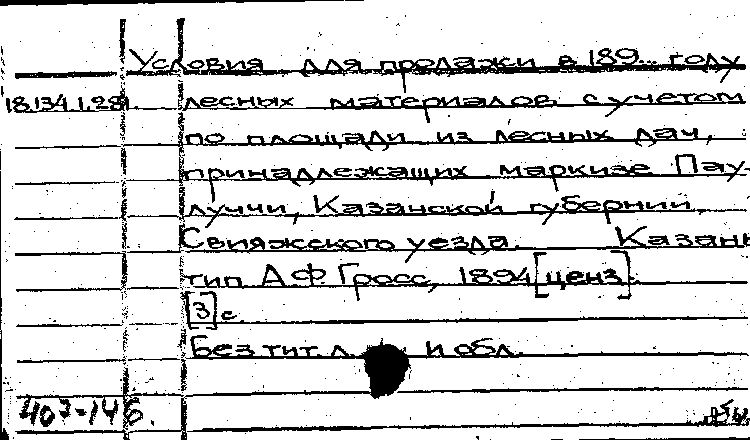 Условия для продажи в 189... году
18.134.1.281. лесных материалов с учетом
по площади из лесных дач,
принадлежащих маркизе Пау-
луччи, Казанской губернии,
Свияжского уезда. Казань
тип А Ф Гросс, 1894 [ценз].
[3] с.
Без тит. л. и обл.
407-146.